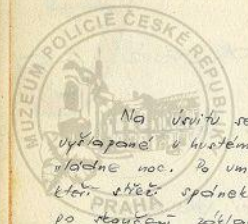 MUZEUM POLICIE ČESKÉ REPUBLIKY
PRAHA
Na úsvitu se
vyšlapané v hustém
vládne noc. Po um
kteří střeží spánek
po skončení zákl